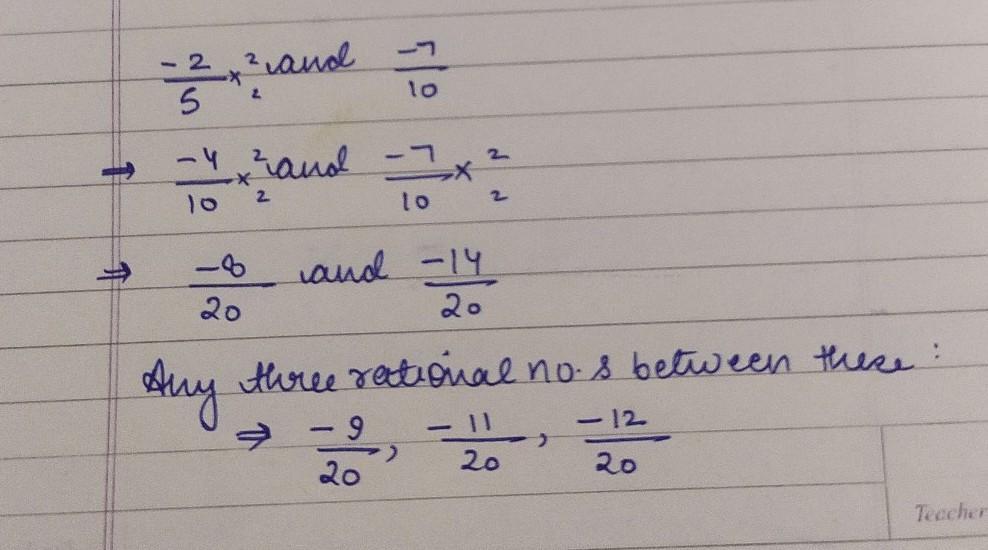 -2/5 × 2/2 and -7/10
→ -4/10 × 2/2 and -7/10 × 2/2
⇒ -8/20 and -14/20
Any three rational no.s between these :
⇒ -9/20, -11/20, -12/20
Teacher